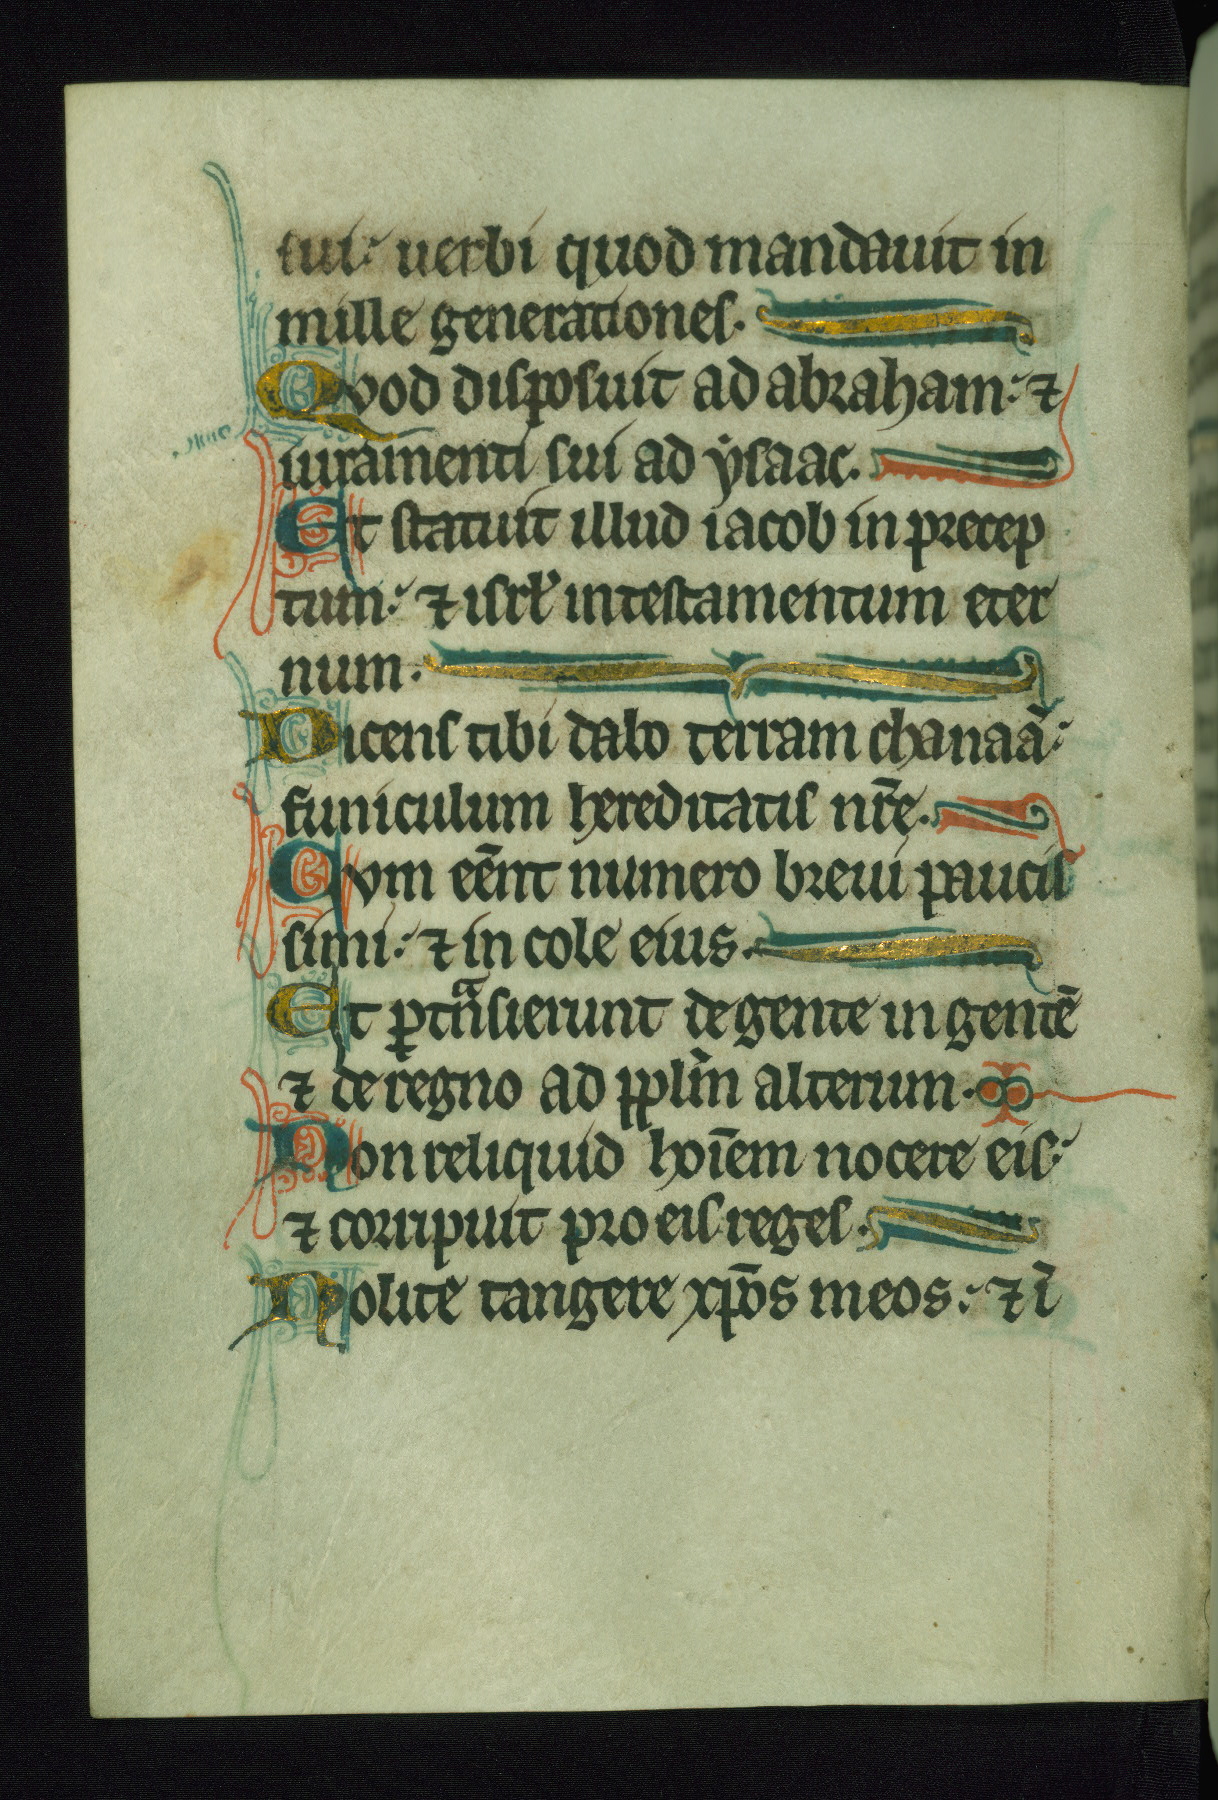 sui: uerbi quod mandauit in
mille generationes.
Quod disposuit ad abraham: ⁊
iuramenti sui ad ẏsaac.
Et statuit illud iacob in precep
tum: ⁊ isrł in testamentum eter
num.
Dicens tibi dabo terram chanaā:
funiculum hereditatis nr̄e.
Cum eēnt numero breui paucis
simi: ⁊ in cole eius.
Et ꝑtnᵃsierunt de gente in gentē
⁊ de regno ad pplm̄ alterum.
Non reliquid hoīem nocere eis:
⁊ corripuit pro eis reges.
Nolite tangere xp̄os meos: ⁊ ī